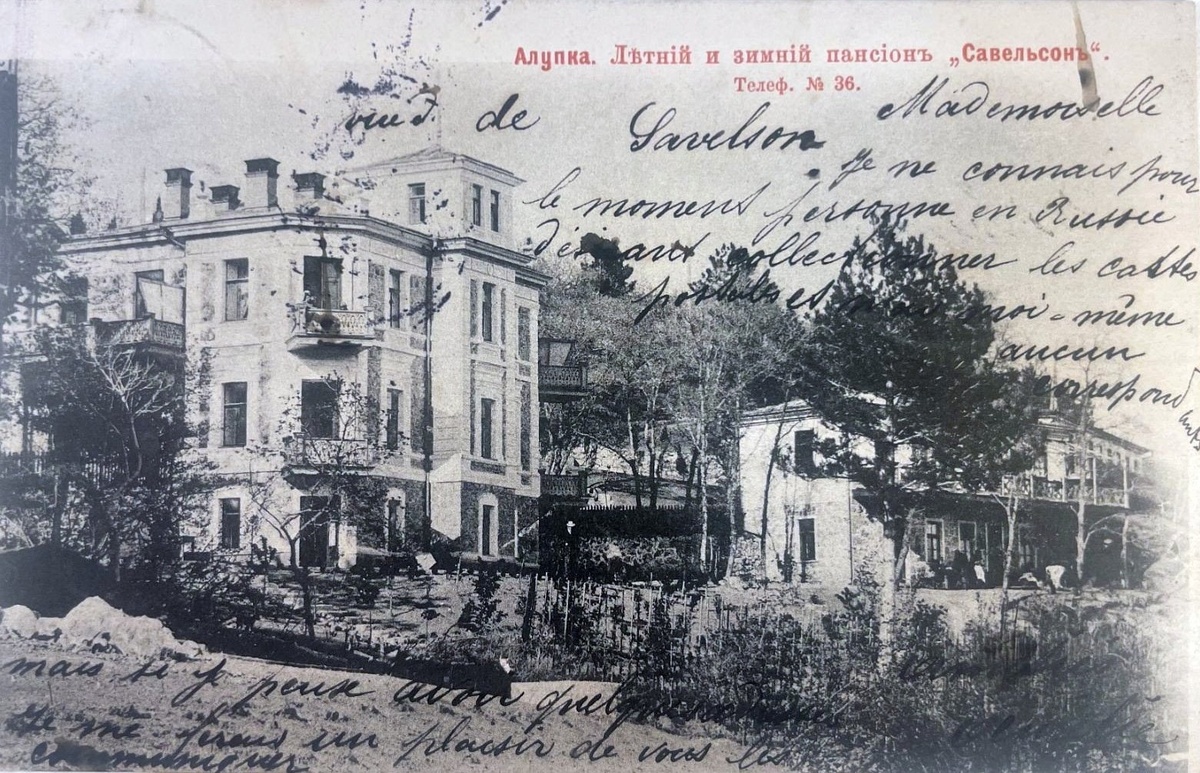 Алупка. Лѣтній и зимній пансіонъ „Савельсонъ“.
Телеф. № 36.
vues de Savelson
Mademoiselle
Je ne connais pour
le moment personne en Russie
désirant collectionner les cartes
postales et n'ai moi-même
aucun
correspondant
mais si je peux avoir quelques
Je me ferais un plaisir de vous les
communiquer